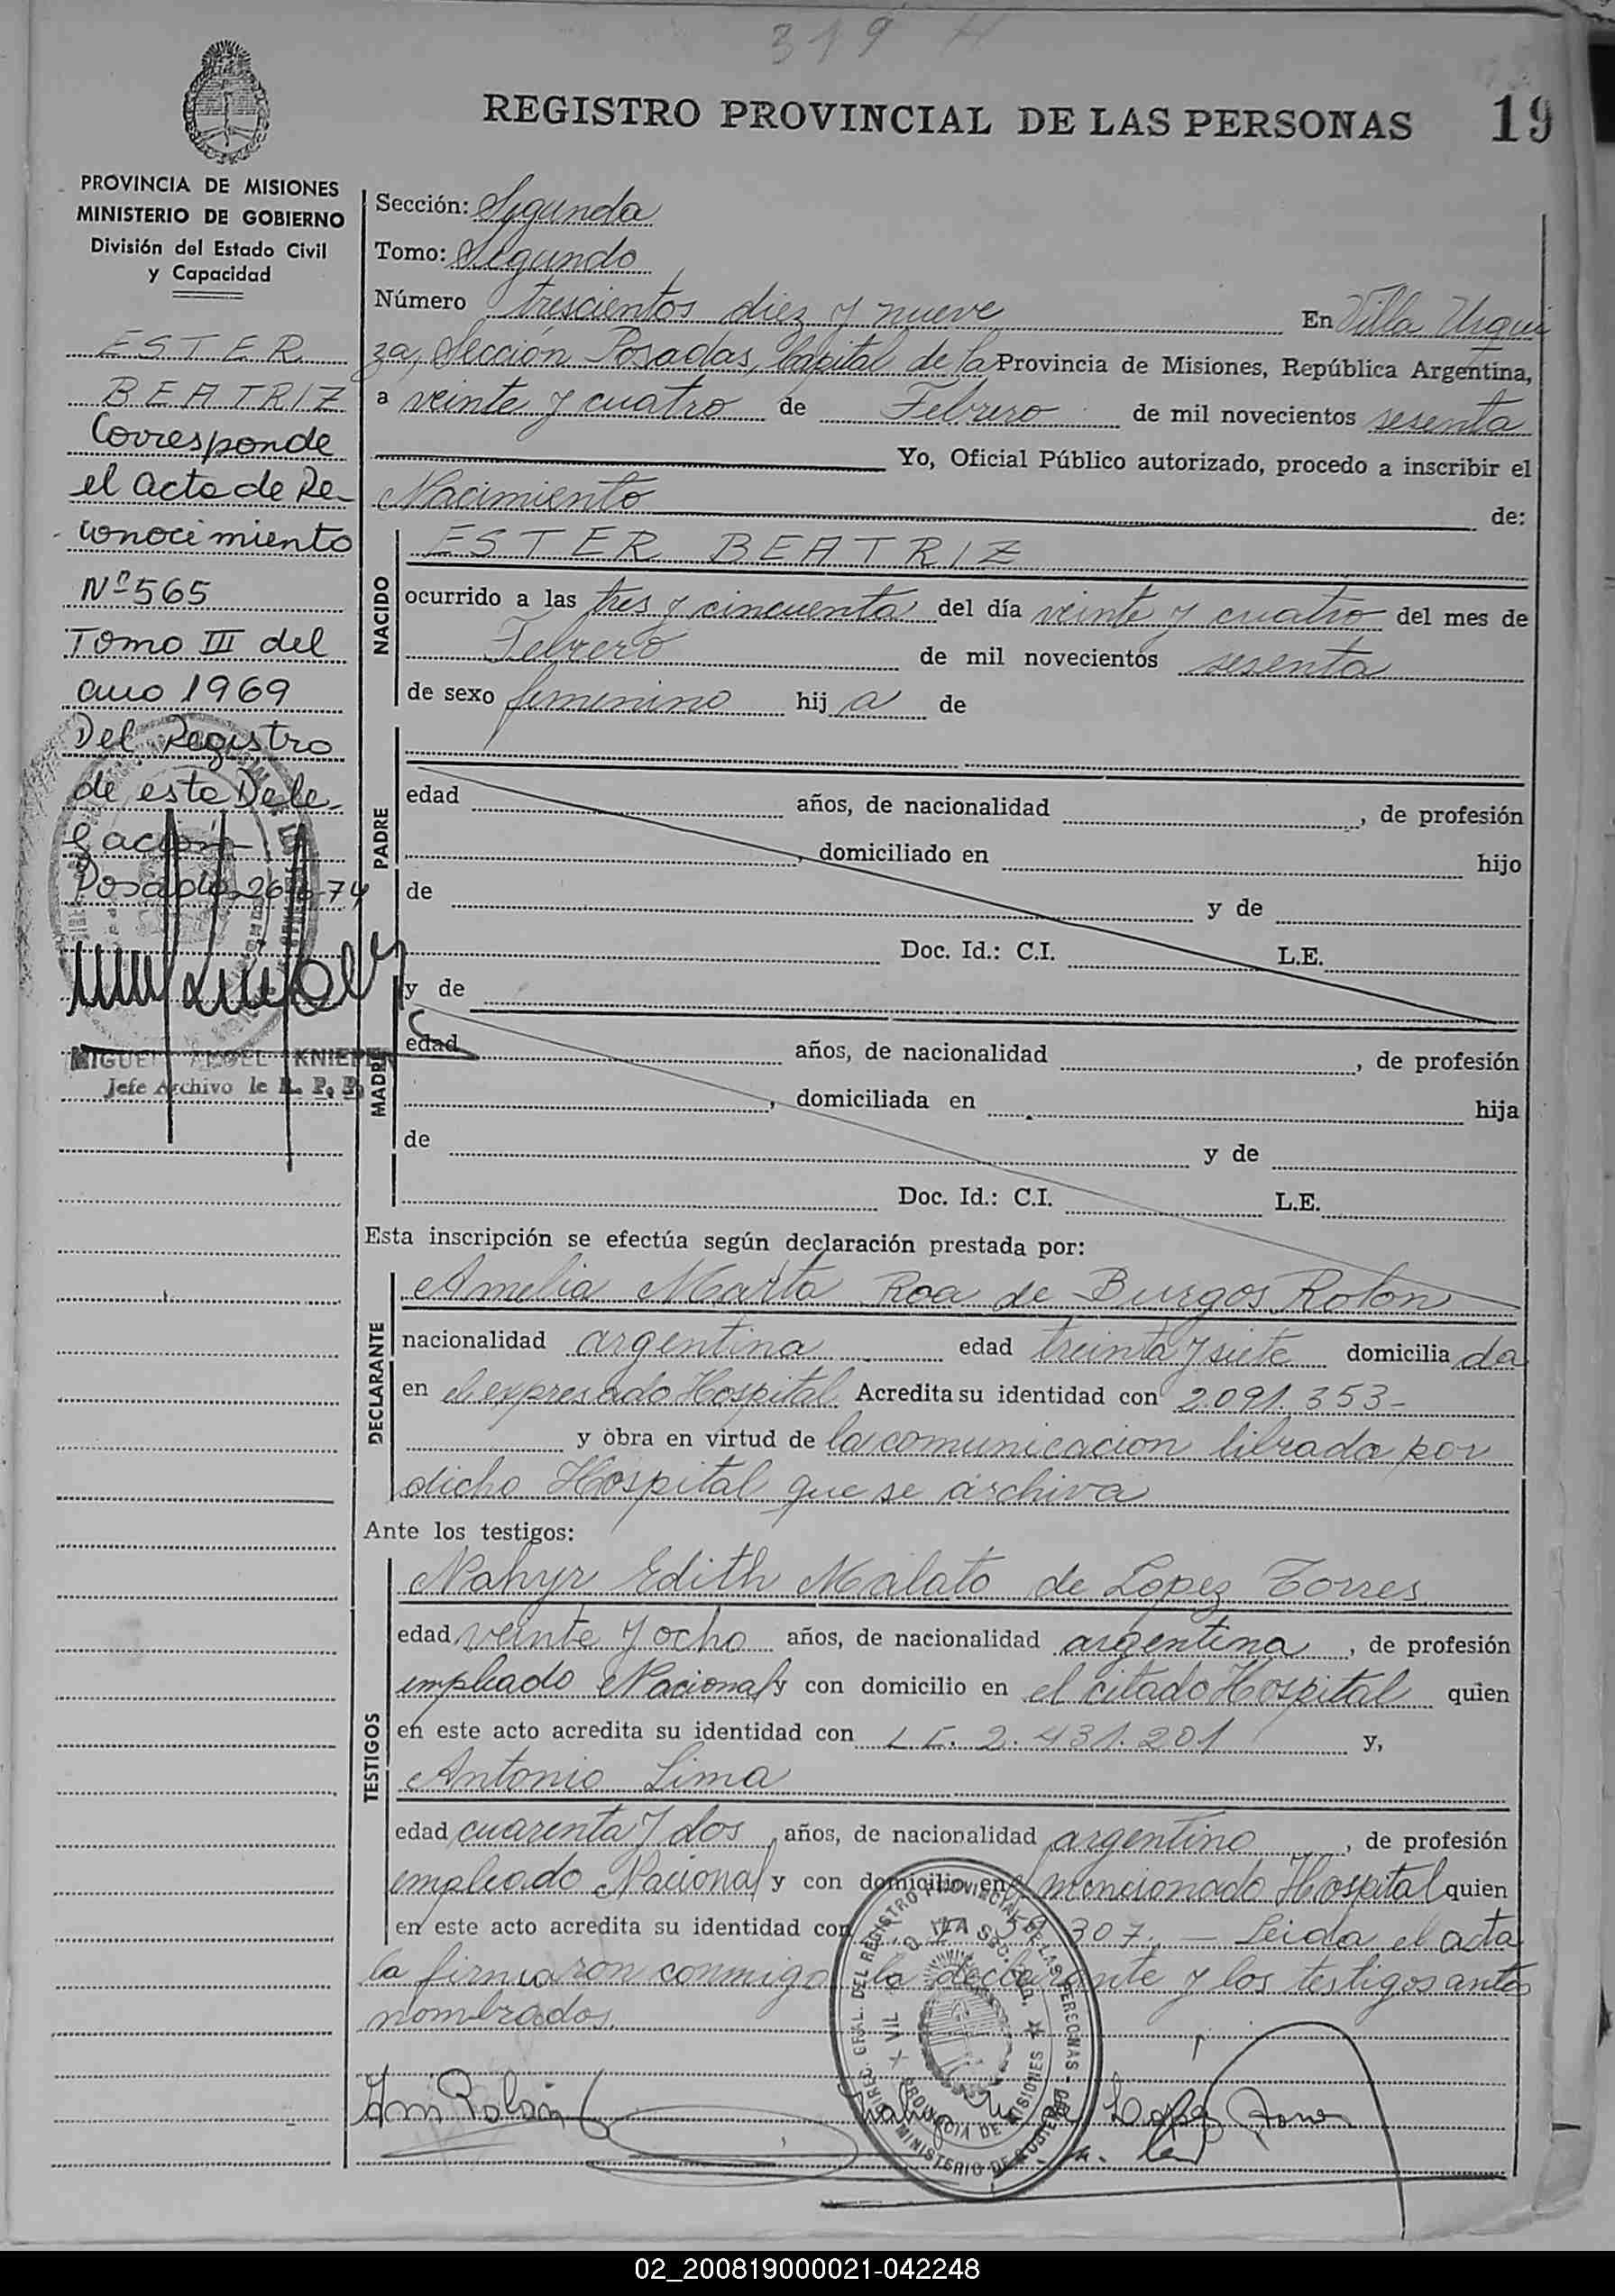 319
REGISTRO PROVINCIAL DE LAS PERSONAS 19
PROVINCIA DE MISIONES
MINISTERIO DE GOBIERNO
División del Estado Civil
y Capacidad
ESTER
BEATRIZ
Corresponde
el Acta de Re-
conocimiento
Nº 565
Tomo III del
año 1969
Del Registro
de esta Dele-
gación
Posadas 26 74
MIGUEL ANGEL KNIEPER
Jefe Archivo de R. P. P.
Sección: Segunda
Tomo: Segundo
Número trescientos diez y nueve En Villa Urqui
za, Sección Posadas, Capital de la Provincia de Misiones, República Argentina,
a veinte y cuatro de Febrero de mil novecientos sesenta
Yo, Oficial Público autorizado, procedo a inscribir el
Nacimiento de:
NACIDO
ESTER BEATRIZ
ocurrido a las tres y cincuenta del día veinte y cuatro del mes de
Febrero de mil novecientos sesenta
de sexo femenino hij a de
PADRE
edad años, de nacionalidad , de profesión
, domiciliado en hijo
de y de
Doc. Id.: C.I. L.E.
y de
MADRE
edad años, de nacionalidad , de profesión
, domiciliada en hija
de y de
Doc. Id.: C.I. L.E.
Esta inscripción se efectúa según declaración prestada por:
DECLARANTE
Amelia Marta Roa de Burgos Rolon
nacionalidad argentina edad treinta y siete domicilia da
en el expresado Hospital Acredita su identidad con 2.091.353-
y obra en virtud de la comunicacion librada por
dicho Hospital que se archiva
Ante los testigos:
TESTIGOS
Nahyr Edith Malato de Lopez Torres
edad veinte y ocho años, de nacionalidad argentina, de profesión
empleado Nacional y con domicilio en el citado Hospital quien
en este acto acredita su identidad con L.E. 2.431.201 y,
Antonio Lima
edad cuarenta y dos, años, de nacionalidad argentino, de profesión
empleado Nacional y con domicilio en el mencionado Hospital quien
en este acto acredita su identidad con 307. — Leida el acta
la firmaron conmigo la declarante y los testigos antes
nombrados.
DIREC. GRAL. DEL REGISTRO PROVINCIAL DE LAS PERSONAS
MINISTERIO DE GOBIERNO
PROVINCIA DE MISIONES
Rolón
Lopez Torres
02_200819000021-042248